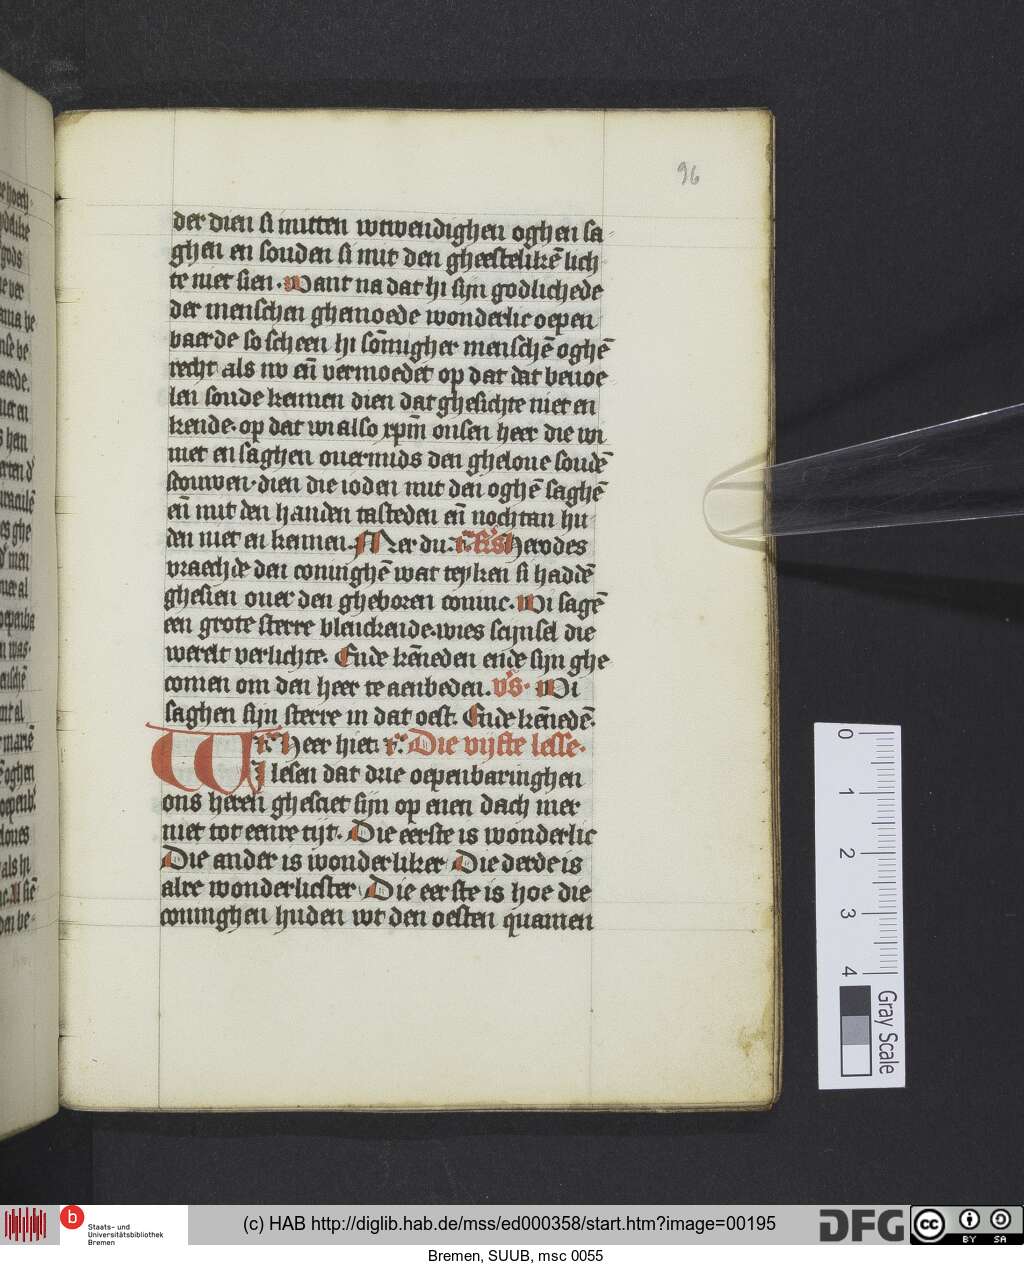 96
der dien si mitten wtwendighen oghen sa
ghen en souden si mit den gheestelikē lich
te niet sien. Want na dat hi sijn godlichede
der menschen ghemoede wonderlic oepen
baerde so scheen hi sōmigher menschē oghē
recht als nv eñ vermoedet op dat dat beuoe
len soude kennen dien dat ghesichte niet en
kende. op dat wi also xpm̄ onsen heer die wi
niet en saghen ouermids den gheloue soudē
scouwen. dien die ioden mit den oghē saghē
eñ mit den handen tasteden eñ nochtan hu
den niet en kennen. Mer du. r̄. Herodes
vraechde den coninghē wat teyken si haddē
ghesien ouer den gheboren coninc. Wi sagē
een grote sterre blenckende. wies scijnsel die
werelt verlichte. Ende kēneden ende sijn ghe
comen om den heer te aenbeden. v̕s. Wi
saghen sijn sterre in dat oest. Ende kēnedē.
r̄. Heer hiet. r̄. Die vijfte lesse.
WI lesen dat drie oepenbaringhen
ons heren ghesciet sijn op enen dach mer
niet tot eenre tijt. Die eerste is wonderlic
Die ander is wonderliker Die derde is
alre wonderlicster Die eerste is hoe die
coninghen huden wt den oesten quamen
0
1
2
3
4
Gray Scale
b
Staats- und
Universitätsbibliothek
Bremen
(c) HAB http://diglib.hab.de/mss/ed000358/start.htm?image=00195
DFG
cc
BY
SA
Bremen, SUUB, msc 0055